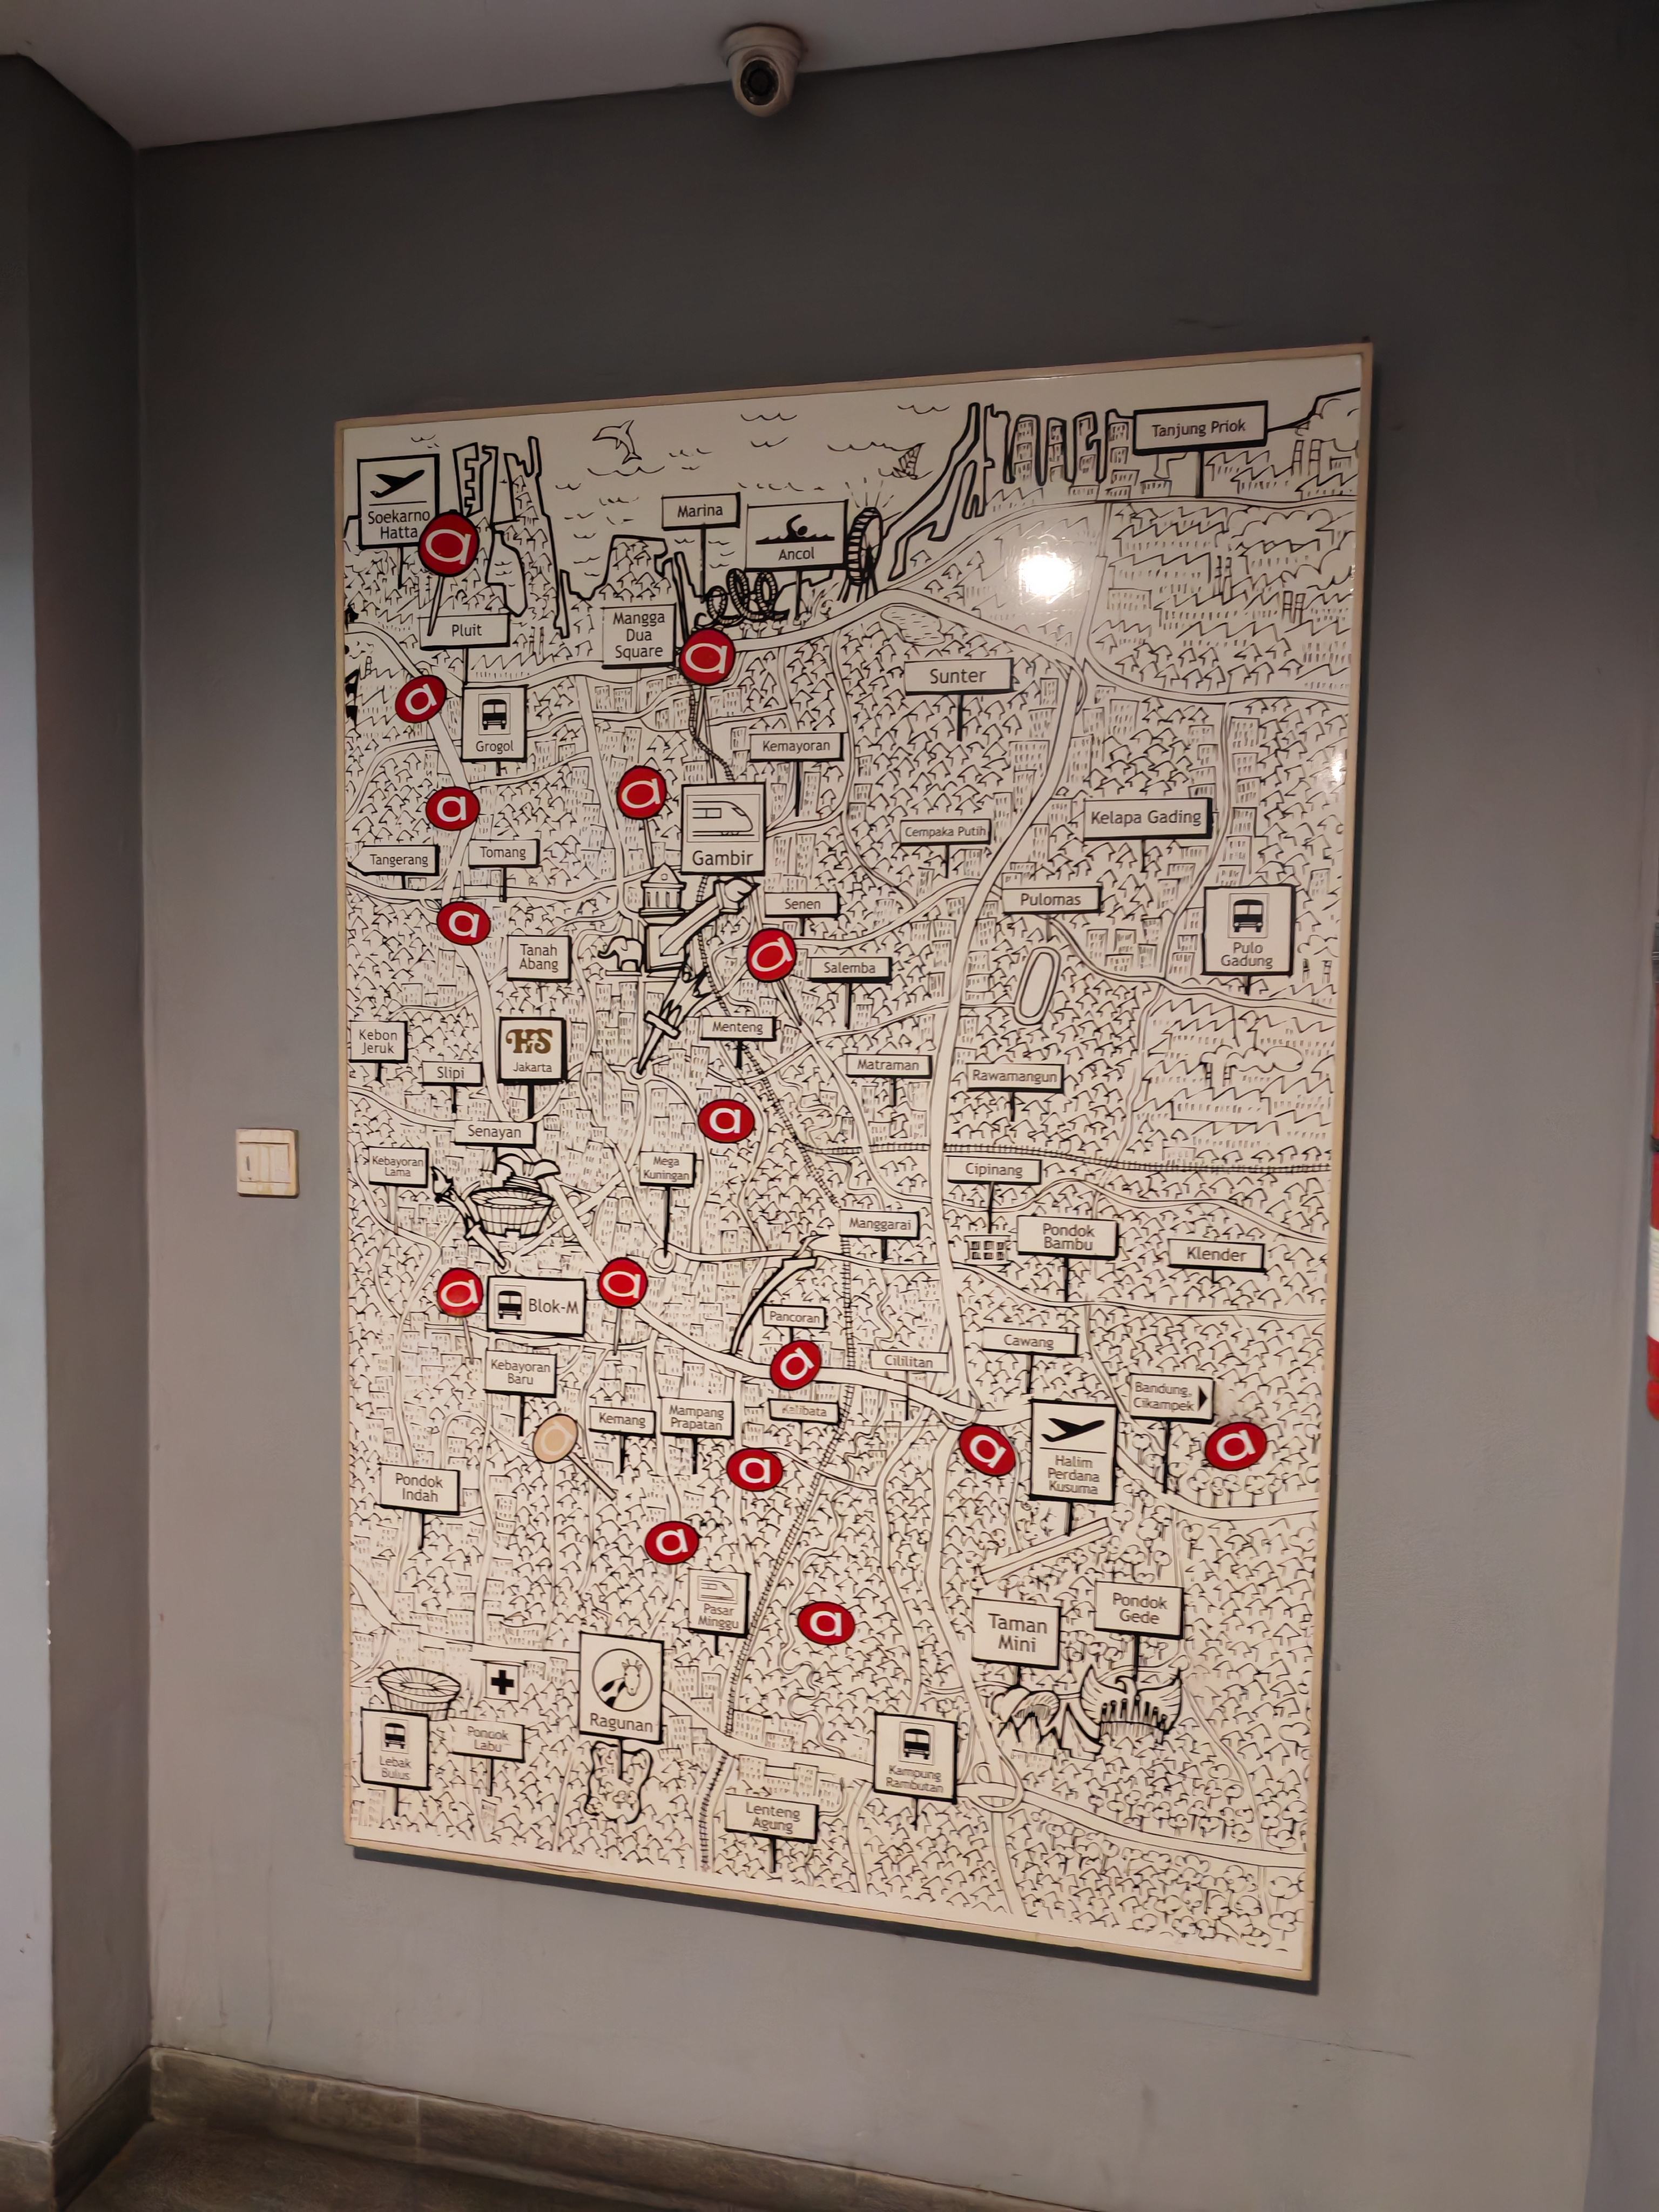 Tanjung Priok
Soekarno
Hatta
a
Marina
Ancol
Pluit
Mangga
Dua
Square
a
a
Sunter
Grogol
Kemayoran
a
a
Gambir
Cempaka Putih
Kelapa Gading
Tangerang
Tomang
a
Senen
Pulomas
Pulo
Gadung
Tanah
Abang
a
Salemba
Kebon
Jeruk
Slipi
HS
Jakarta
Menteng
Matraman
Rawamangun
a
Senayan
Kebayoran
Lama
Mega
Kuningan
Cipinang
Manggarai
Pondok
Bambu
Klender
a
Blok-M
a
Pancoran
Cawang
Kebayoran
Baru
a
Cililitan
Bandung,
Cikampek
a
Kemang
Mampang
Prapatan
Kalibata
a
Halim
Perdana
Kusuma
a
Pondok
Indah
a
a
Pasar
Minggu
a
Taman
Mini
Pondok
Gede
Ragunan
Lebak
Bulus
Pondok
Labu
Kampung
Rambutan
Lenteng
Agung